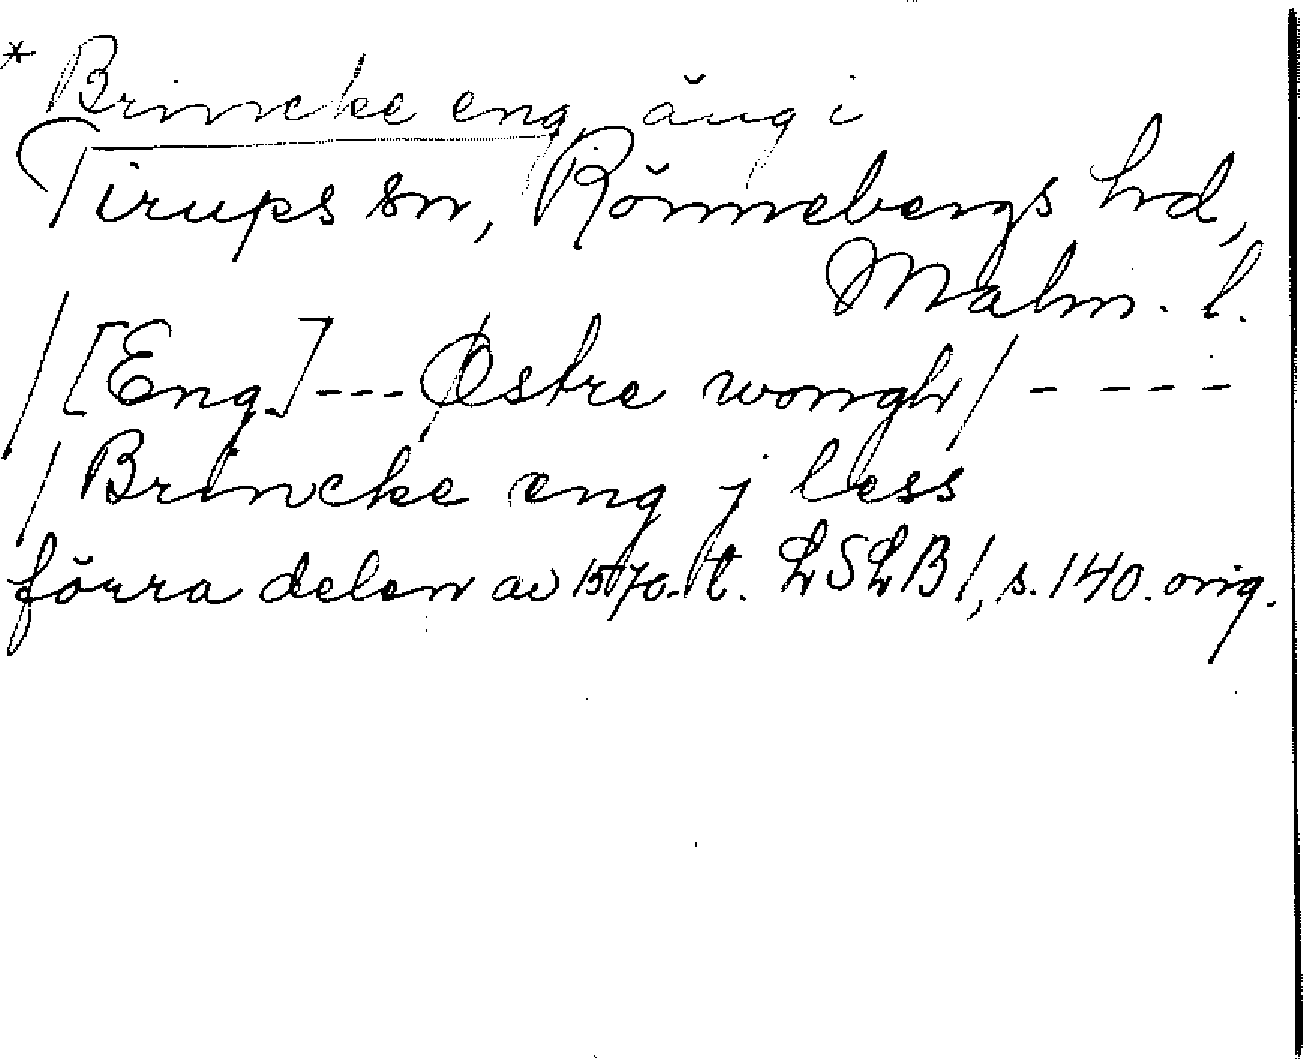 * Brincke eng, äng i
Tirups sn, Rönnebergs hd,
Malm. l.
/[Eng.]--- Østre wongh/ ----
/Brincke eng j less
förra delen av 1570-t. LSLB 1, s. 140. orig.